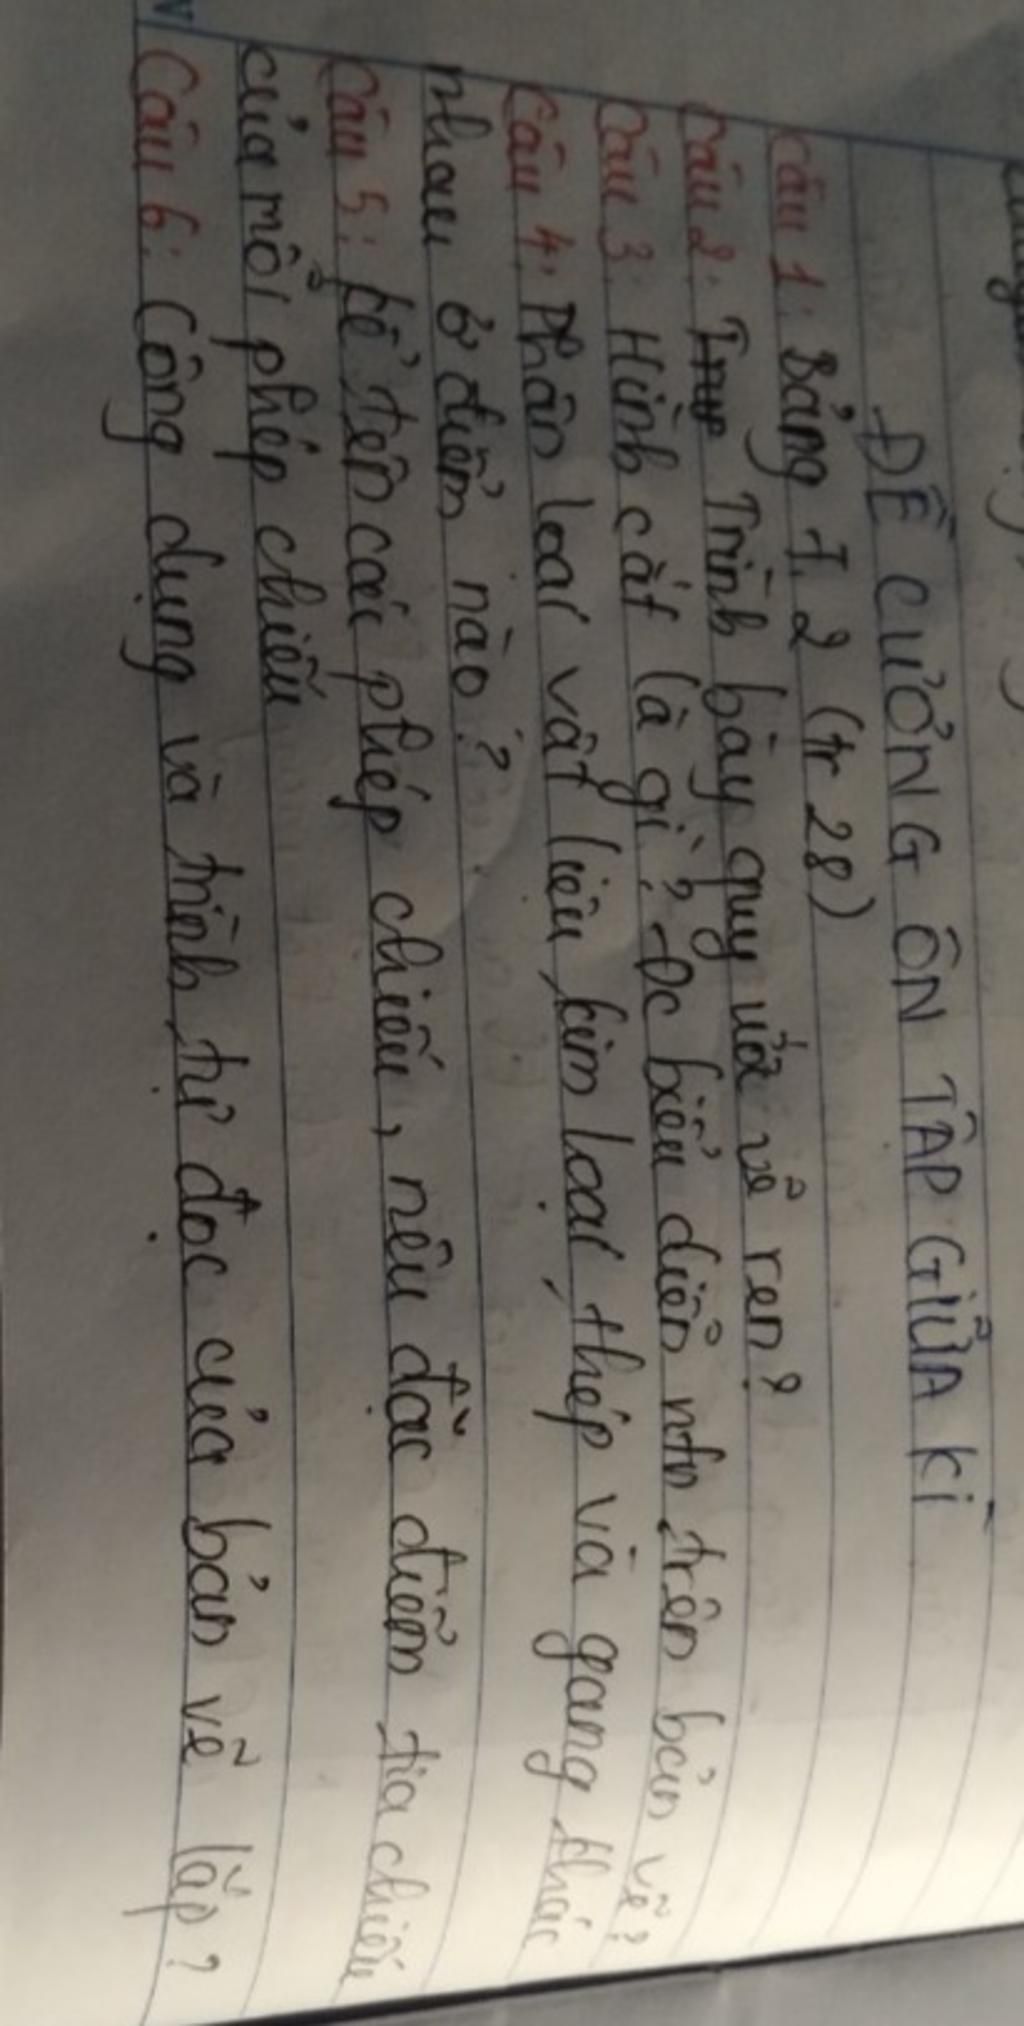 ĐỀ CƯỞNG ÔN TẬP GIỮA KÌ
Câu 1: Bảng 7.2 (tr 28)
Câu 2: Trình bày quy ước vẽ ren?
Câu 3: Hình cắt là gì?, Đc biểu diễn ntn trên bản vẽ?
Câu 4: Phân loại vật liệu kim loại, thép và gang khác
nhau ở điểm nào?
Câu 5: Kể tên các phép chiếu, nêu đặc điểm tia chiếu
của mỗi phép chiếu
Câu 6: Công dụng và trình tự đọc của bản vẽ lắp?